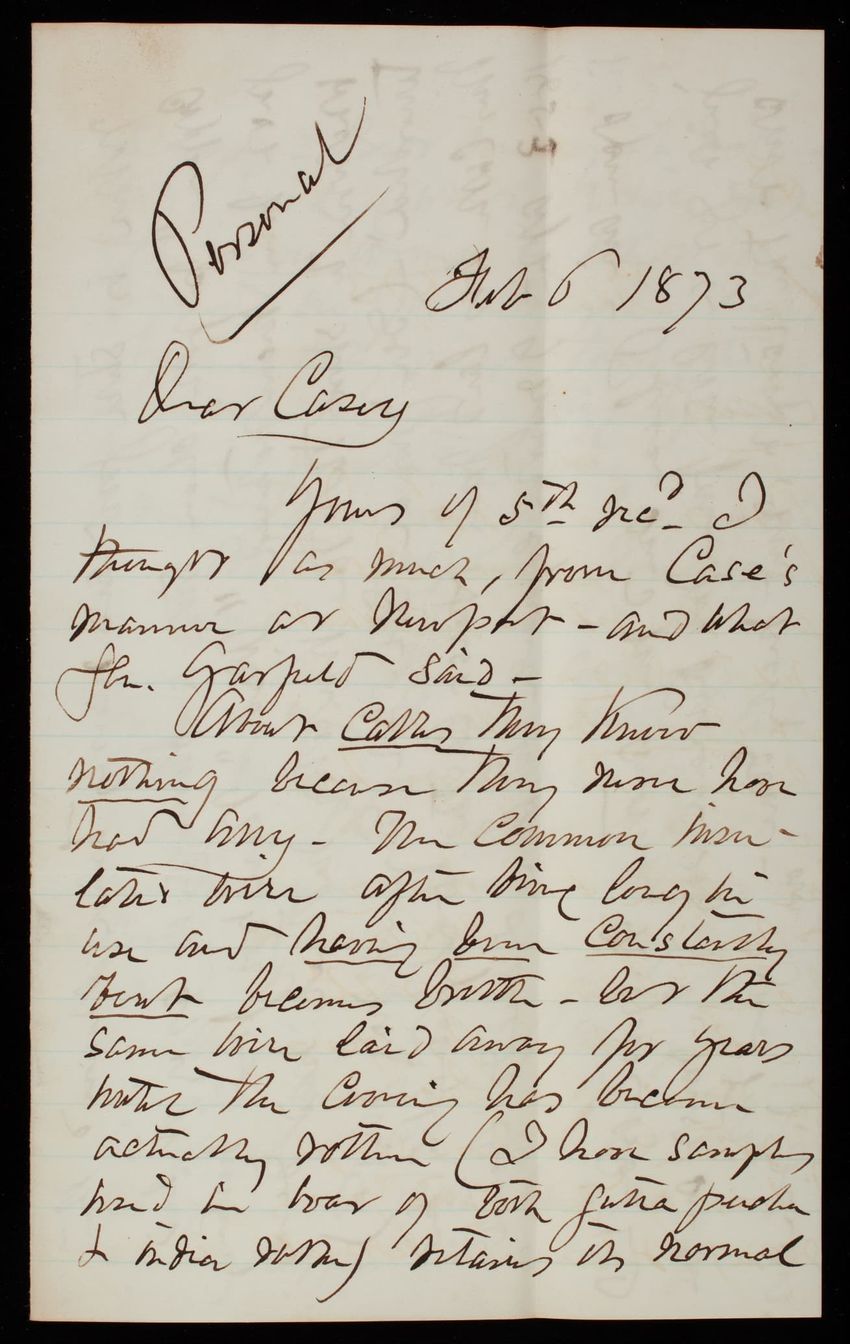 Personal
Feb 6 1873
Dear Casey
Yours of 5th recd. I
thought as much, from Case's
manner at Newport - and what
Gen. Garfield said -
About Cables they know
nothing because they never have
had any - The common insu-
lated wire after being long in
use and having been constantly
bent becomes brittle - but the
same wire laid away for years
until the covering has become
actually rotten (I have samples
used in war of both gutta percha
& india rubber) retains its normal